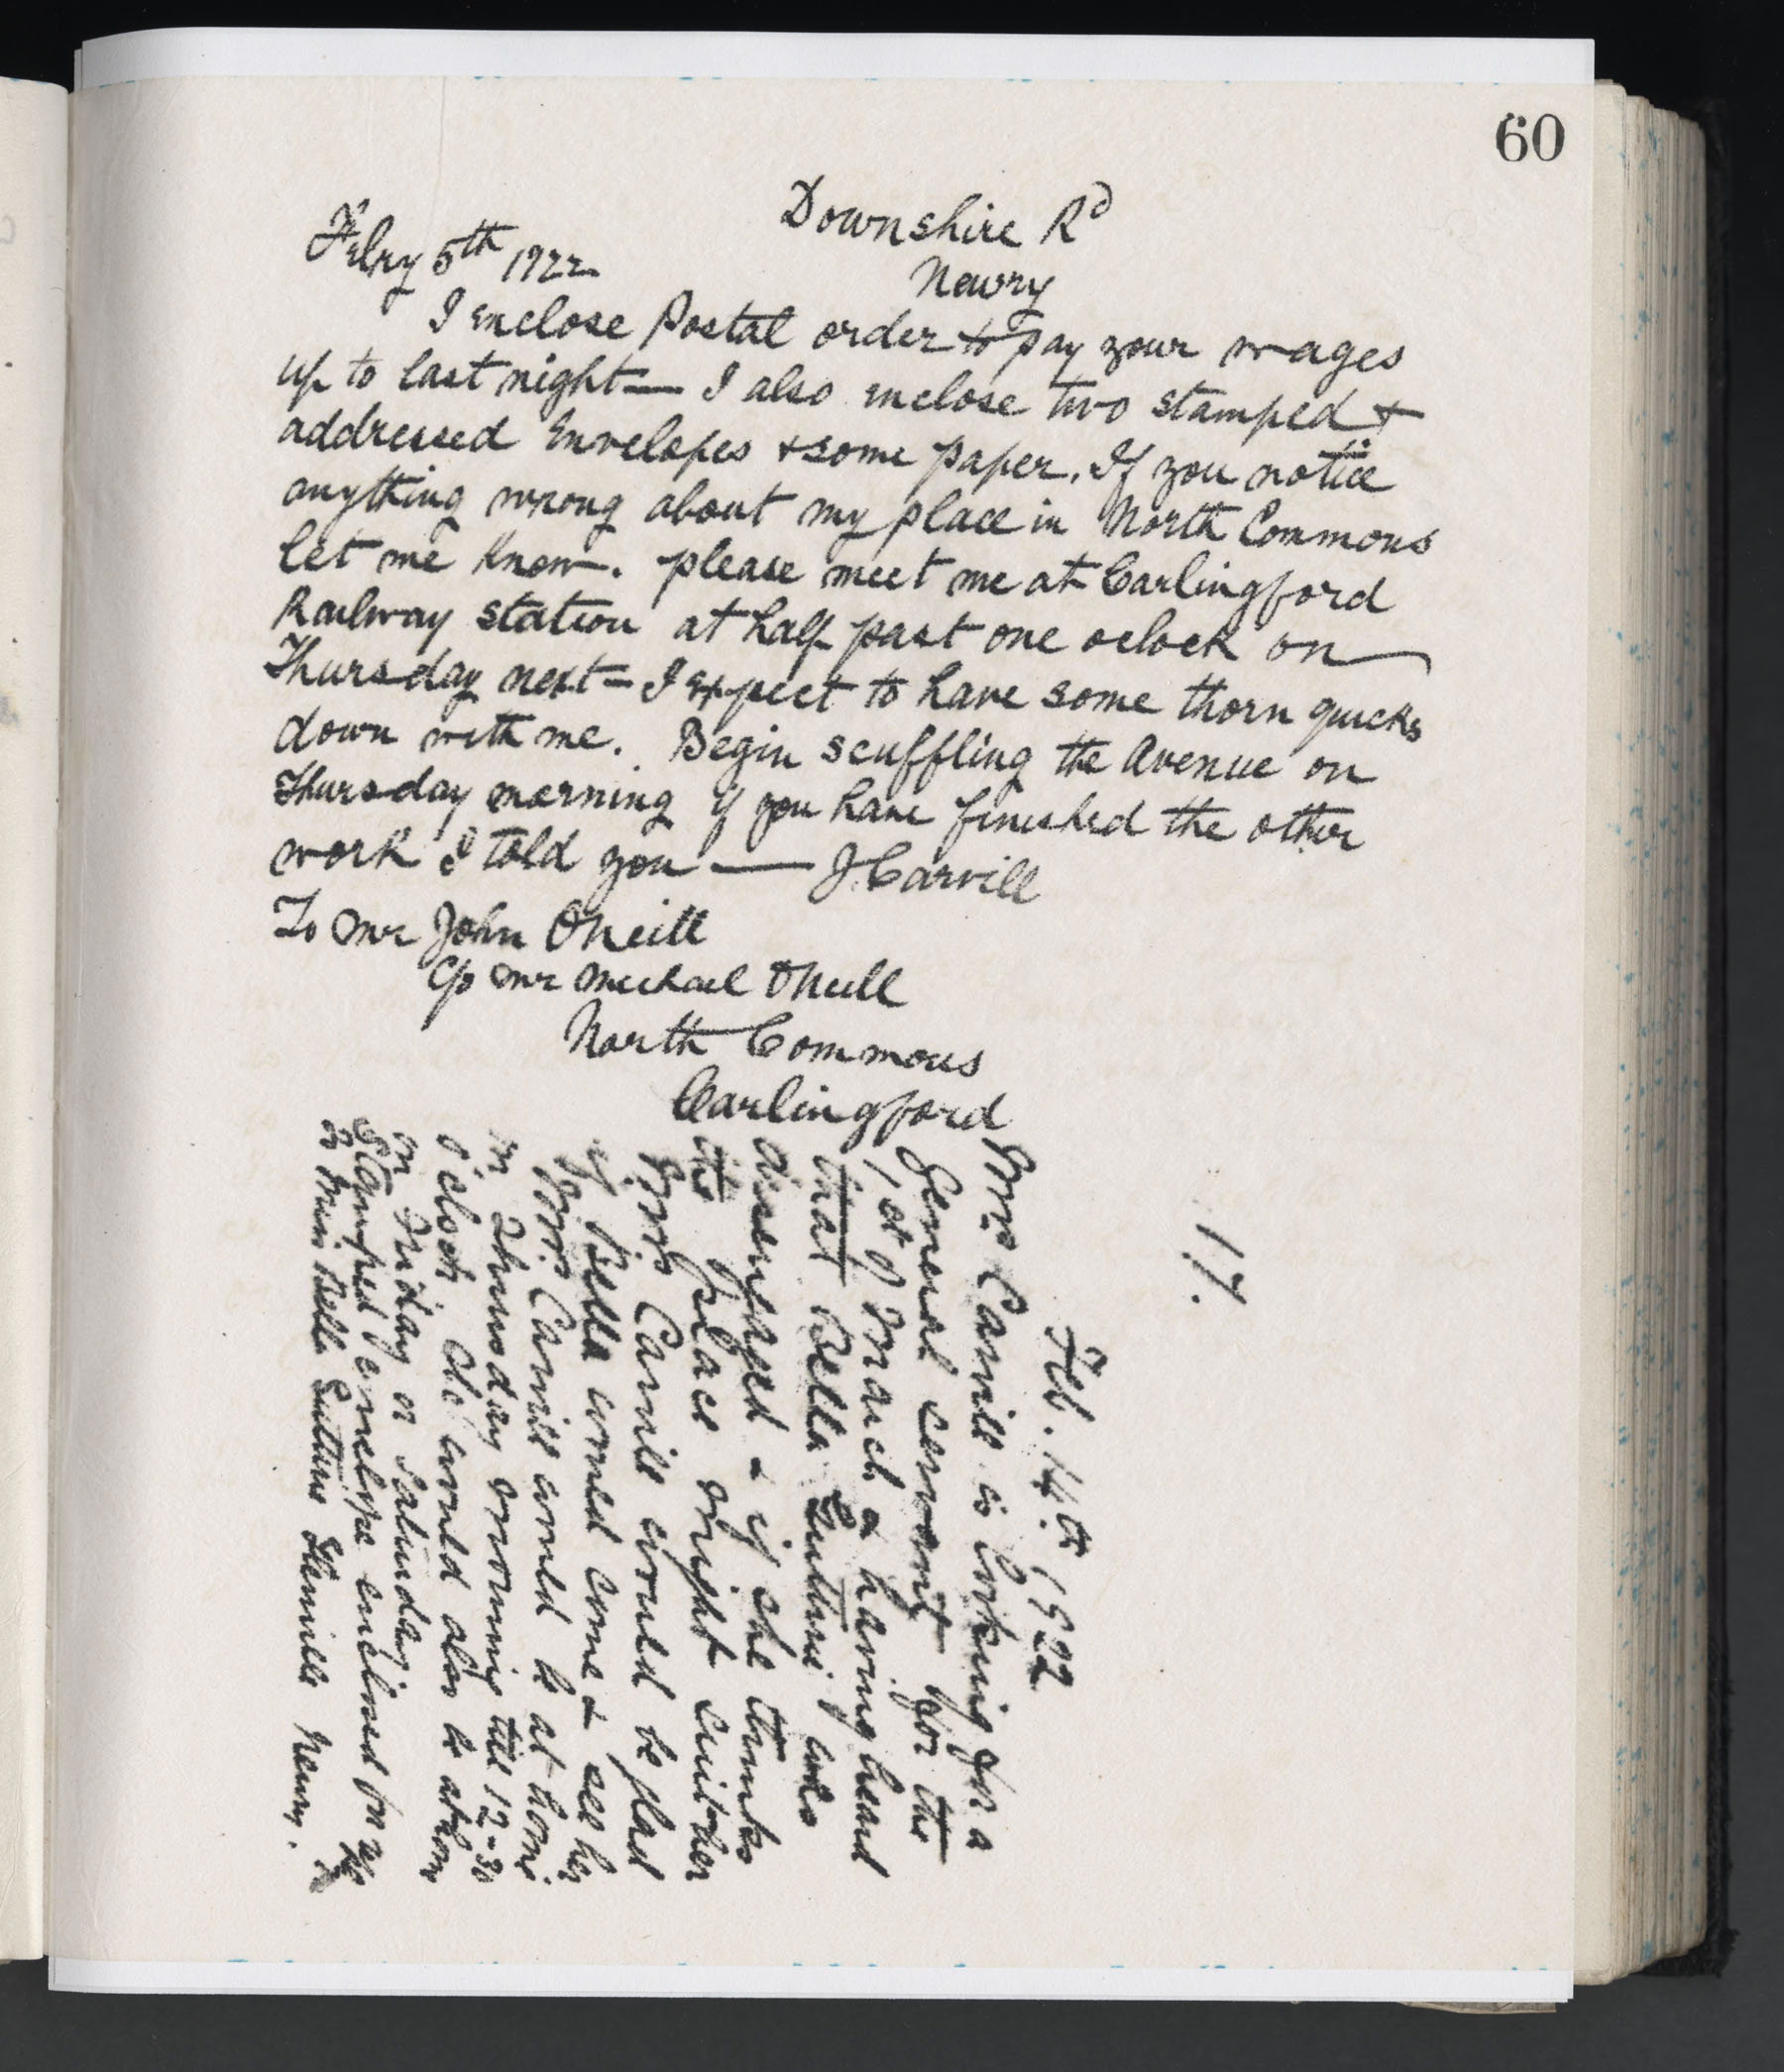 60
Downshire Rd
Febry 5th 1922
Newry
I enclose Postal order to pay your wages
up to last night — I also enclose two stamped +
addressed Envelopes + some paper. If you notice
anything wrong about my place in North Commons
let me know. please meet me at Carlingford
Railway station at half past one oclock on
Thursday next = I expect to have some thorn quicks
down with me. Begin scuffling the Avenue on
Thursday morning if you have finished the other
work I told you — J Carvill
To Mr John ONeill
c/o Mr Michael ONeill
North Commons
Carlingford
17.
Feb. 14th 1922
Mrs Carvill is looking for a
General servant for the
1st of March & having heard
that Bella was
disengaged & if she thinks
the place might suit her
Mrs Carvill would be glad
if Bella would come & see her
Mrs Carvill would be at home
on Thursday morning till 12-30
o'clock. She would also be at home
on Friday or Saturday
Stamped envelope enclosed for
To Miss Bella Newry.